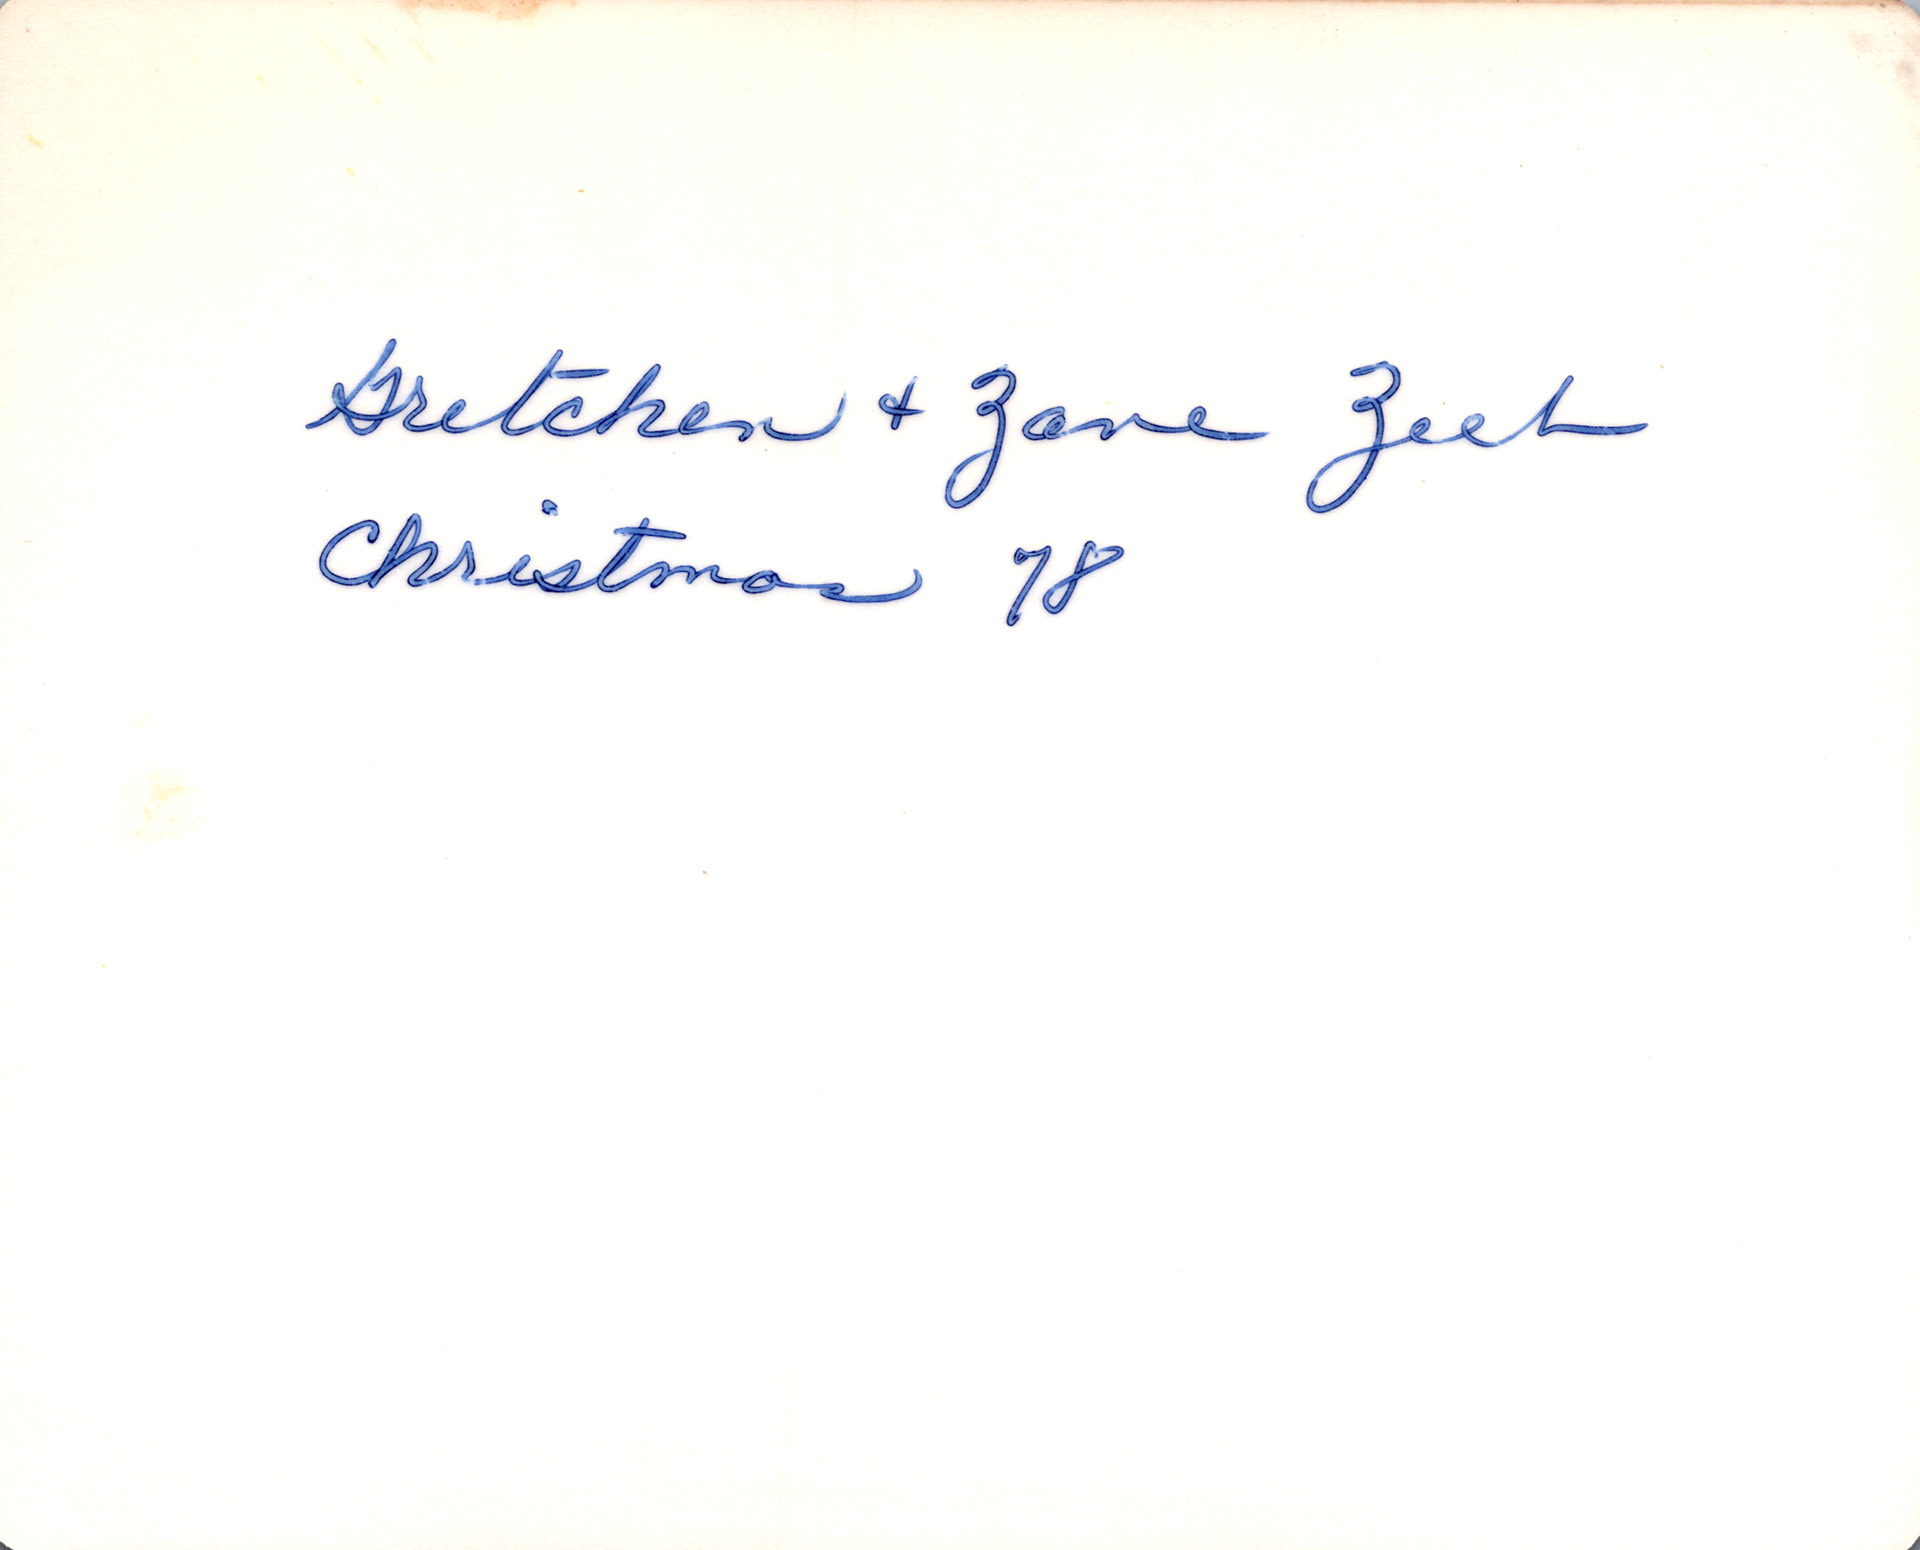 Gretchen & Zane Zeeb
Christmas 78